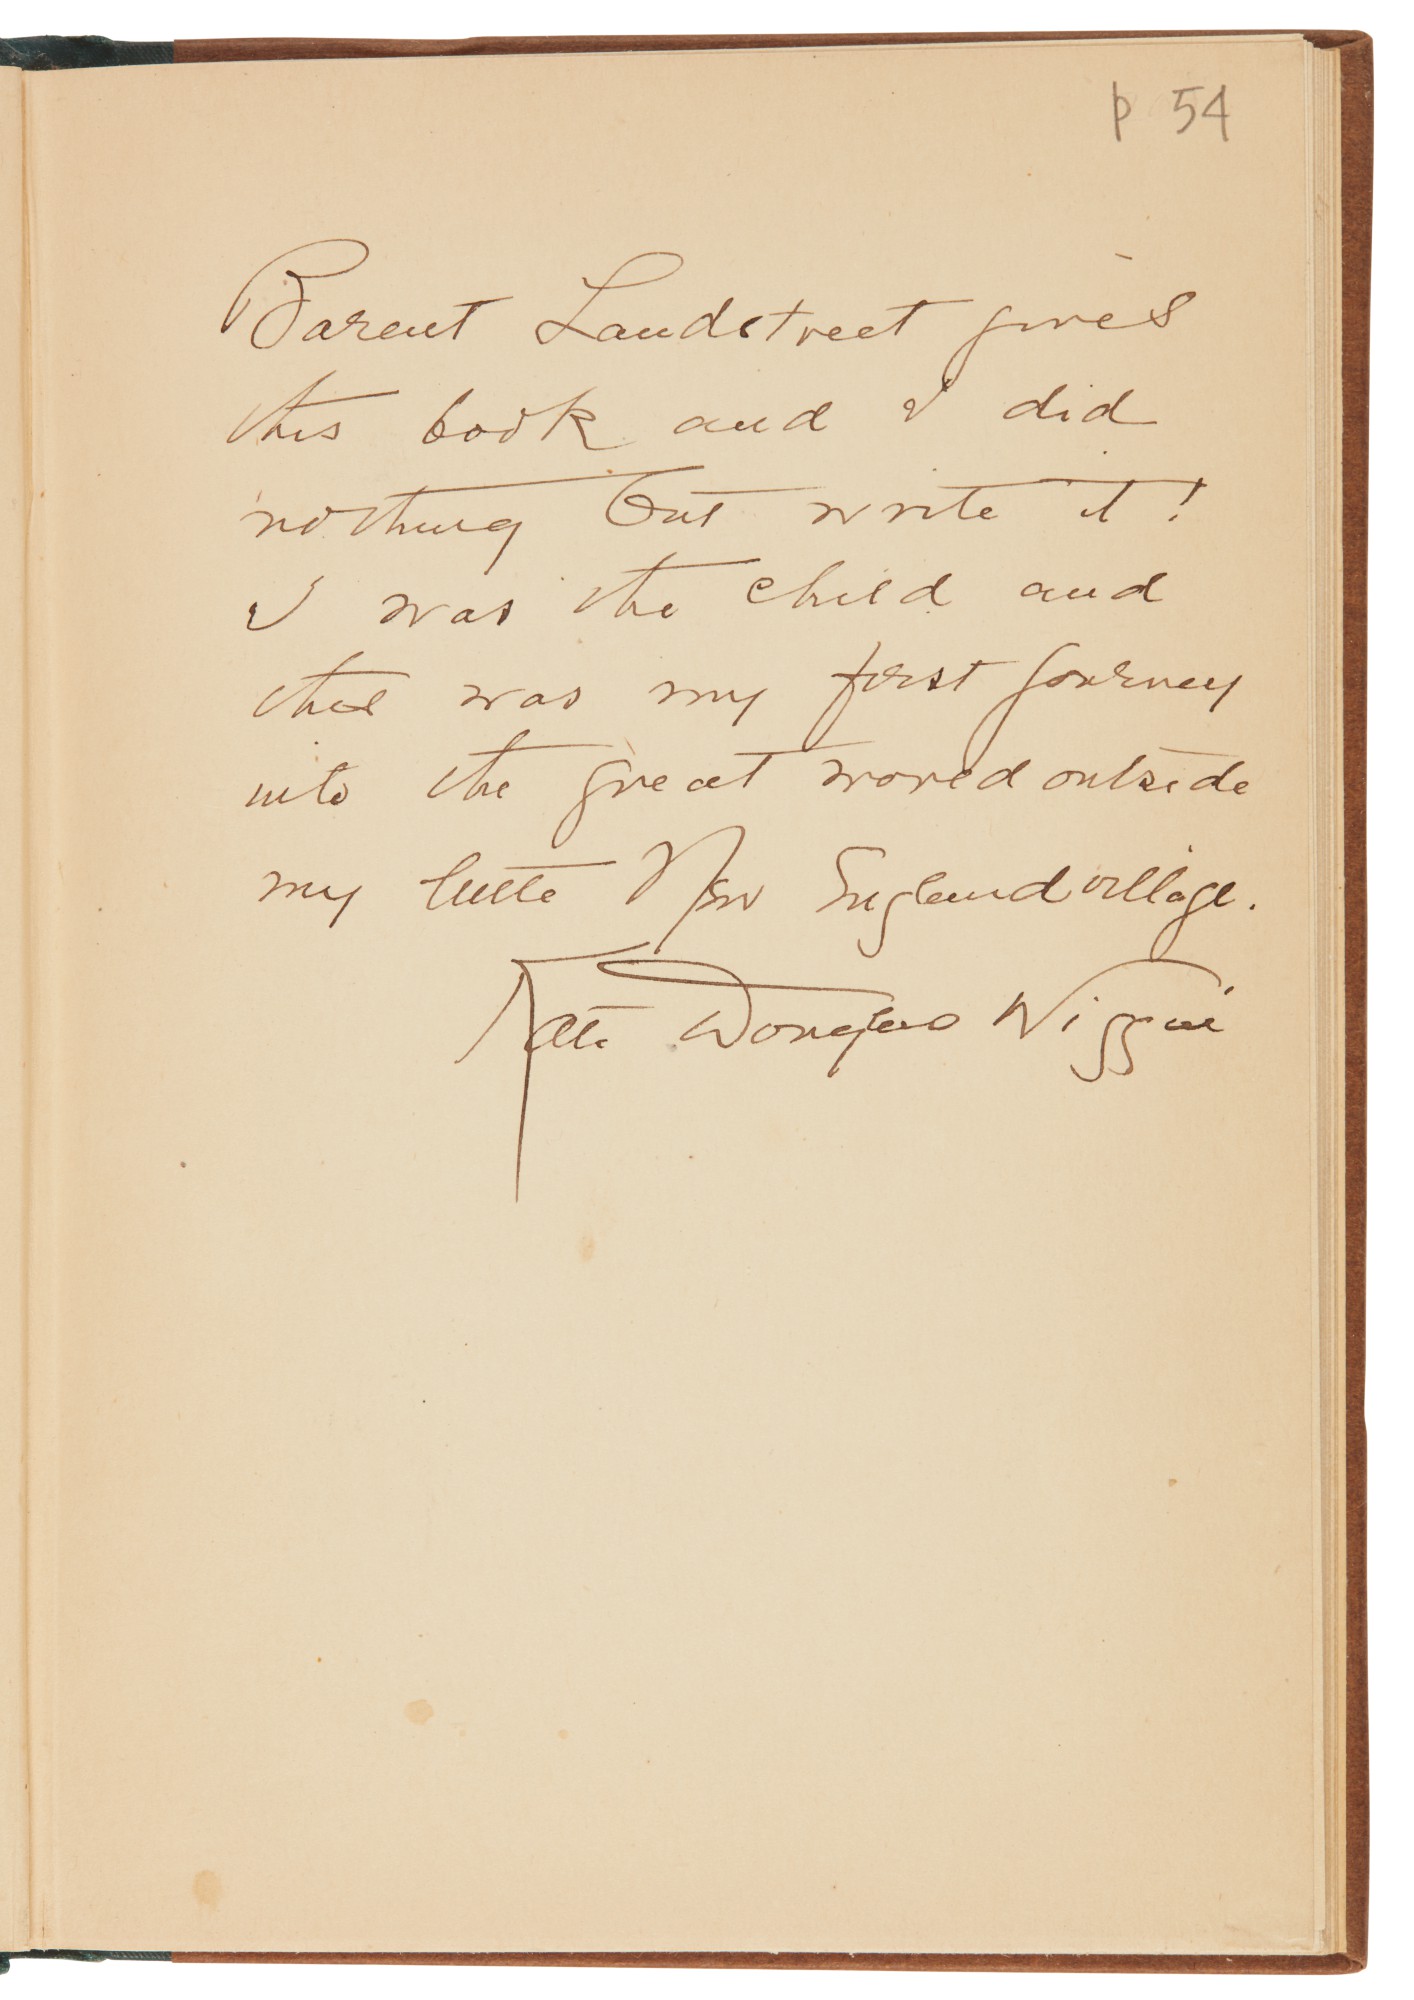 p 54
Barent Landstreet gives
this book and I did
nothing but write it!
I was the child and
this was my first journey
into the great world outside
my little New England village.
Kate Douglas Wiggin